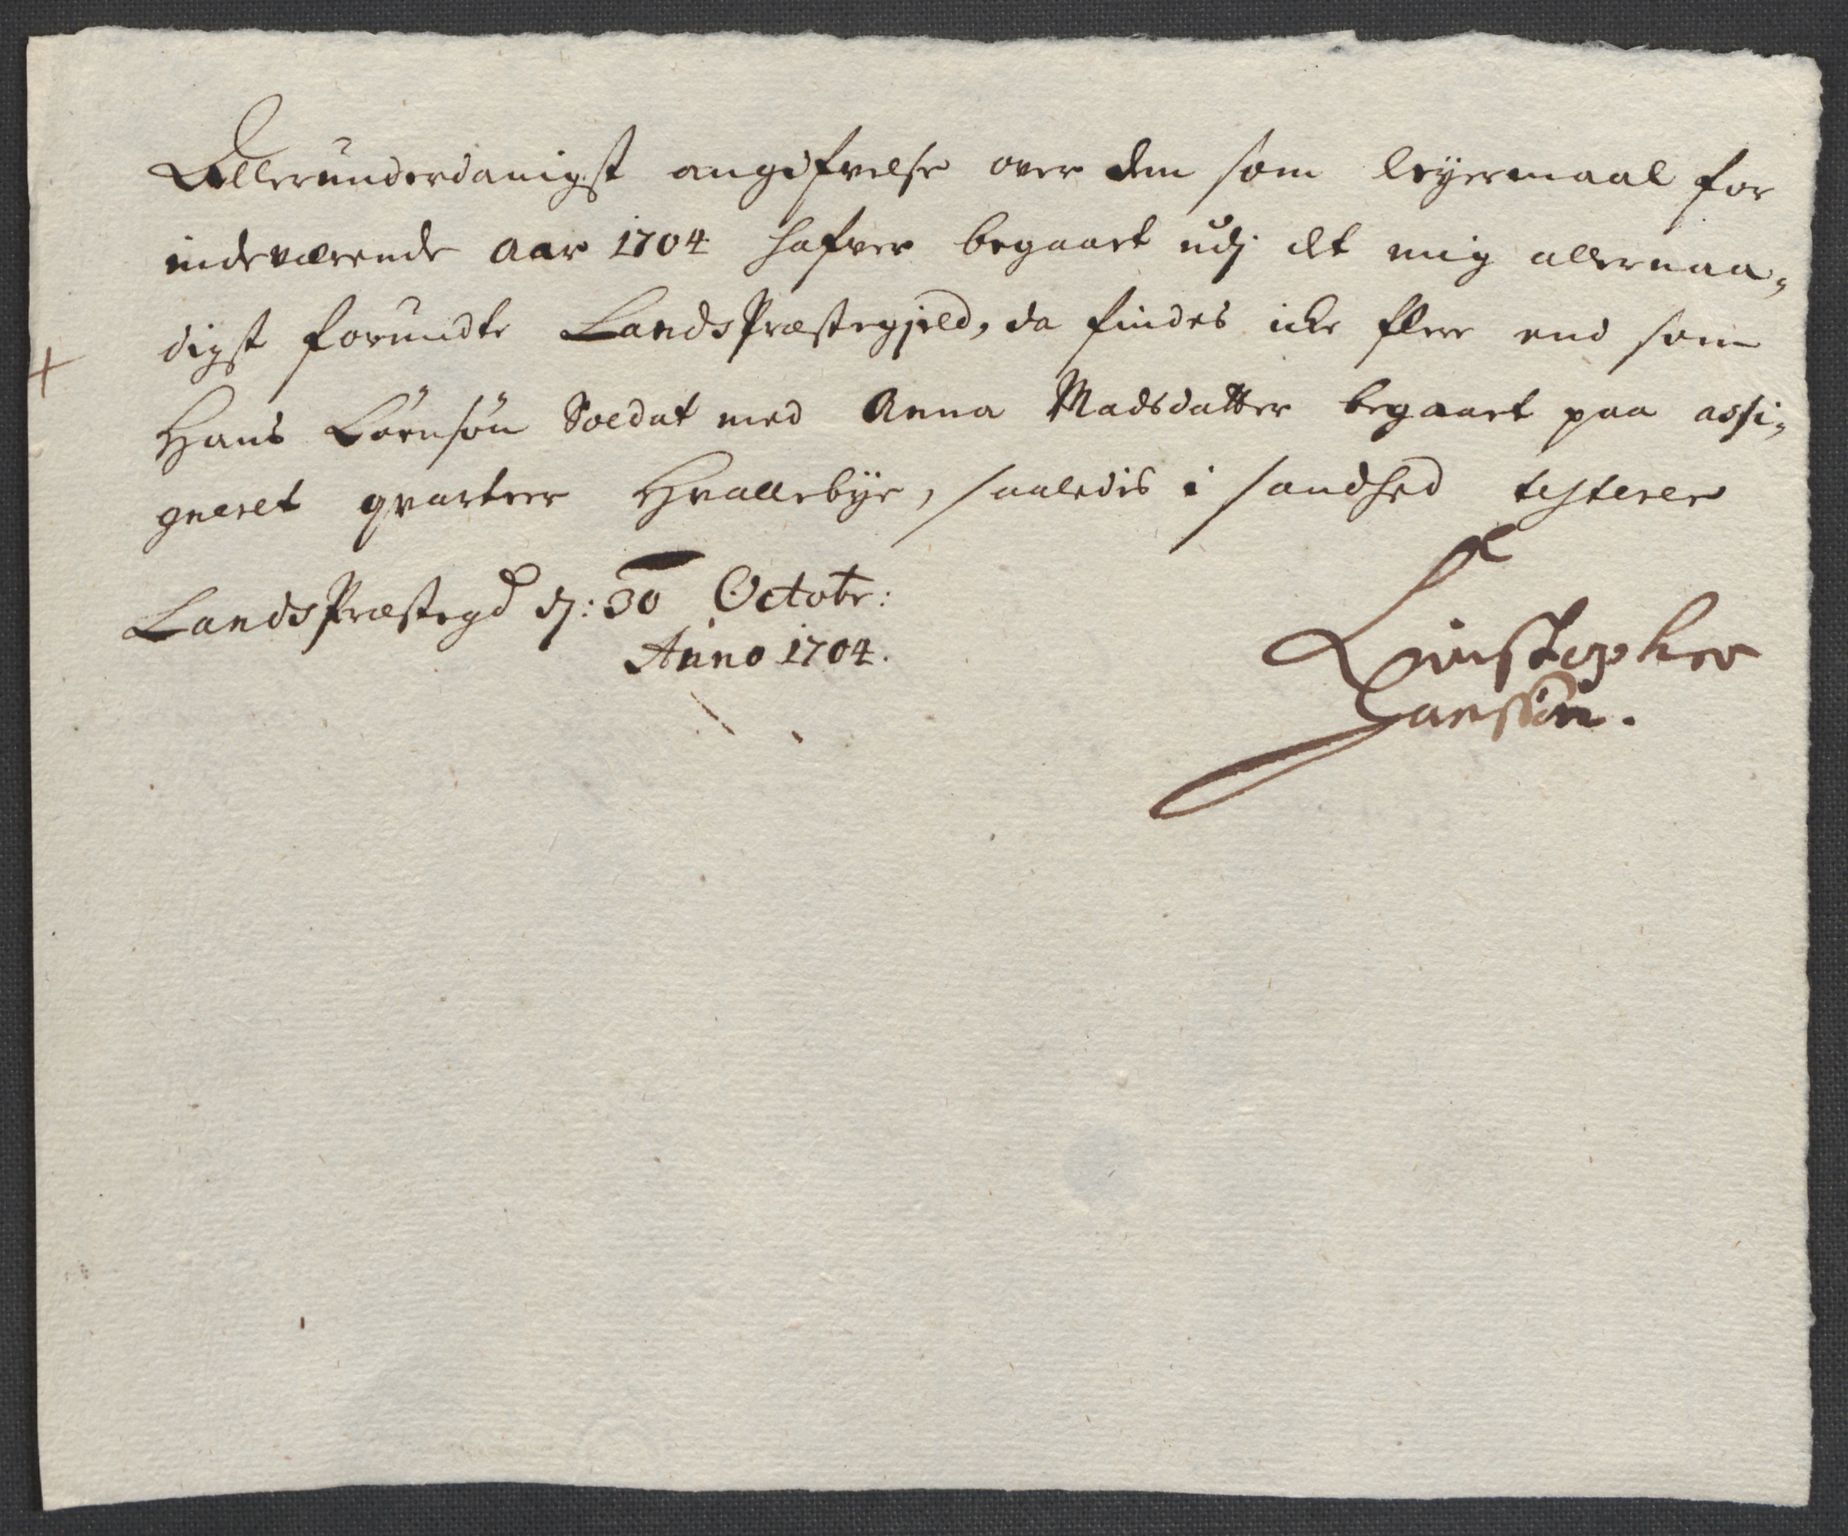 Allerunderdanigst angifvelse over dem som leyermaal for
indeværende Aar 1704 hafver begaaet udj det mig allernaa„
digst forundte LandsPræstegjeld, da findes icke fleer end som
Hans Soldat med Anna Madsdatter begaaet paa assi„
gneret qvarteer Hvallebye, saaledis i sandhed testerer
LandsPræstegd dj: 30 Octobr:
Anno 1704.
Christopher
Hanssön.